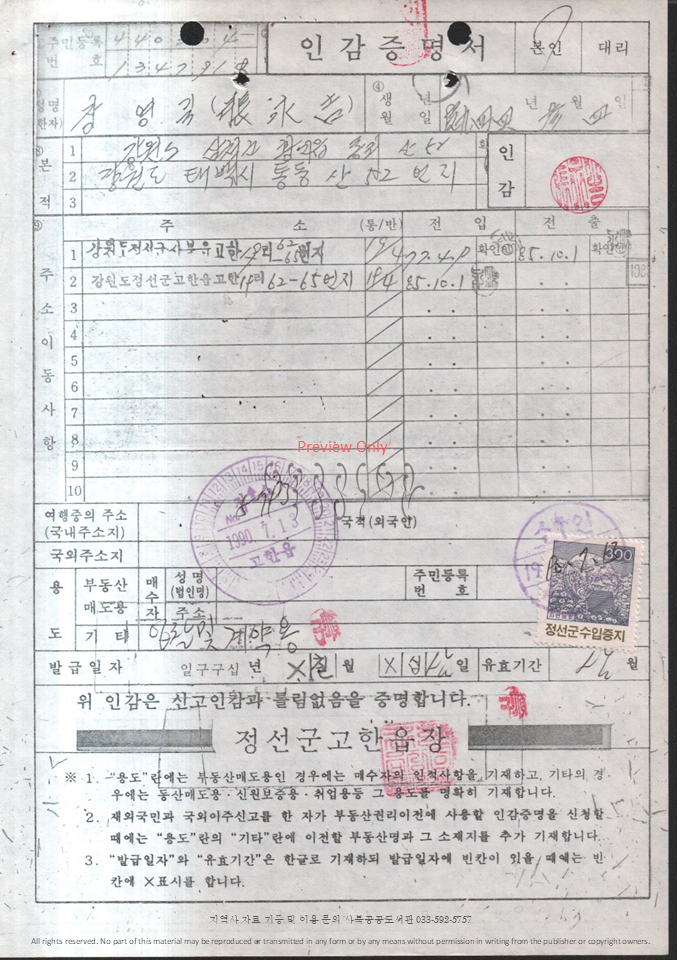 주민등록 번호 440304-1347918
인감증명서 본인 대리
성명 (한자) 영길 (張永吉) 생년월일 년 월 일
본적
1 강원도 산 52
2 강원도 태백시 통동 산 52 번지
3
인감
주소 (통/반) 전입 전출
주소이동사항
1 강원도정선군사북읍고한 리 62-65번지 77.4.9 확인 85.10.1 확인
2 강원도정선군고한읍고한 리 62-65번지 85.10.1
3
4
5
6
7
8
9
10
Preview Only
여행중의 주소
(국내주소지)
국적(외국인)
국외주소지
No.
1990.7.13
고한읍
300
정선군수입증지
용도 부동산매도용 매수자 성명 (법인명) 주민등록번호
주소
기타 및 계약용
발급일자 일구구십 년 X칠 월 X십삼 일 유효기간 월
위 인감은 신고인감과 틀림없음을 증명합니다.
정선군고한읍장
※ 1. "용도"란에는 부동산매도용인 경우에는 매수자의 인적사항을 기재하고, 기타의 경
우에는 동산매도용·신원보증용·취업용등 그 용도를 명확히 기재합니다.
2. 재외국민과 국외이주신고를 한 자가 부동산권리이전에 사용할 인감증명을 신청할
때에는 "용도"란의 "기타"란에 이전할 부동산명과 그 소재지를 추가 기재합니다.
3. "발급일자"와 "유효기간"은 한글로 기재하되 발급일자에 빈칸이 있을 때에는 빈
칸에 X표시를 합니다.
지역사 자료 기증 및 이용 문의 사북공공도서관 033-592-5757
All rights reserved. No part of this material may be reproduced or transmitted in any form or by any means without permission in writing from the publisher or copyright owners.